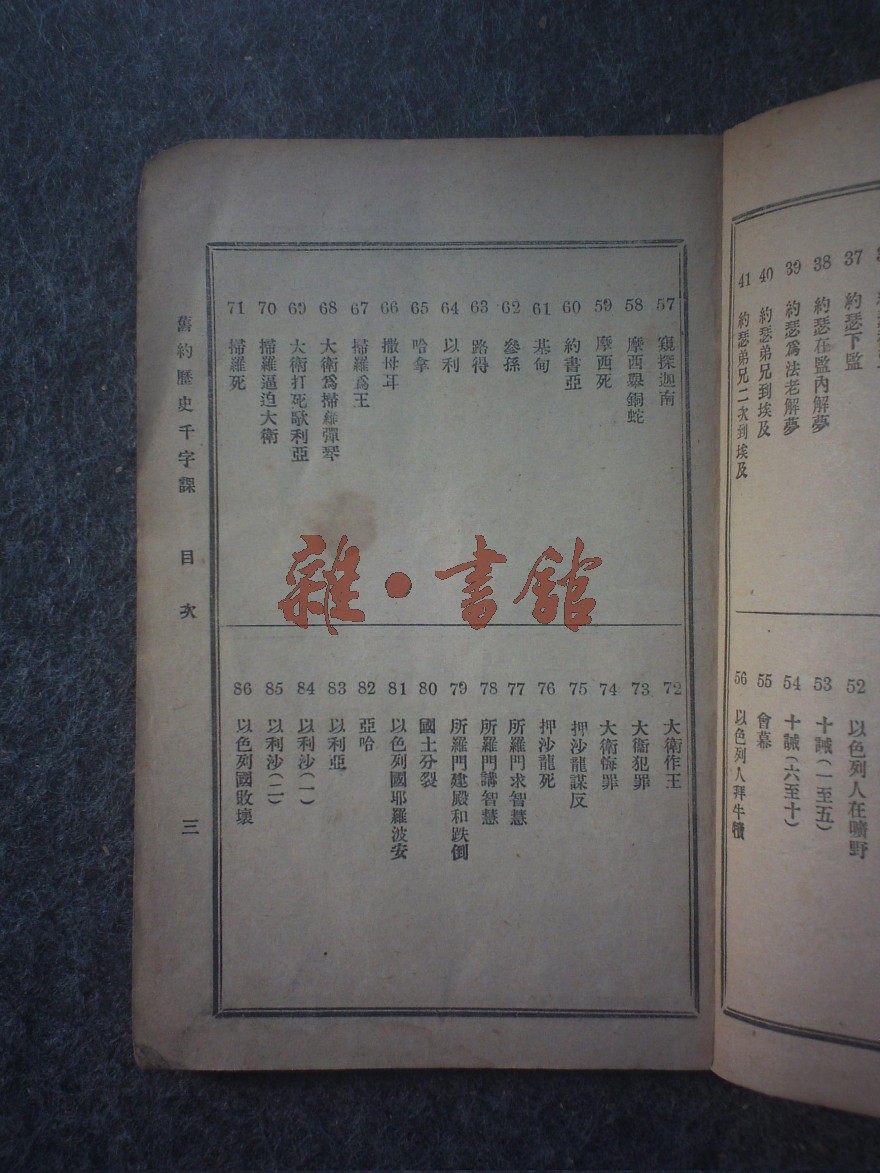 37 約瑟下監
38 約瑟在監內解夢
39 約瑟爲法老解夢
40 約瑟弟兄到埃及
41 約瑟弟兄二次到埃及
52 以色列人在曠野
53 十誡(一至五)
54 十誡(六至十)
55 會幕
56 以色列人拜牛犢
57 窺探迦南
58 摩西舉銅蛇
59 摩西死
60 約書亞
61 基甸
62 參孫
63 路得
64 以利
65 哈拿
66 撒母耳
67 掃羅爲王
68 大衛爲掃羅彈琴
69 大衛打死歌利亞
70 掃羅逼迫大衛
71 掃羅死
72 大衛作王
73 大衞犯罪
74 大衛悔罪
75 押沙龍謀反
76 押沙龍死
77 所羅門求智慧
78 所羅門講智慧
79 所羅門建殿和跌倒
80 國土分裂
81 以色列國耶羅波安
82 亞哈
83 以利亞
84 以利沙(一)
85 以利沙(二)
86 以色列國敗壞
舊約歷史千字課 目次 三
雜·書館